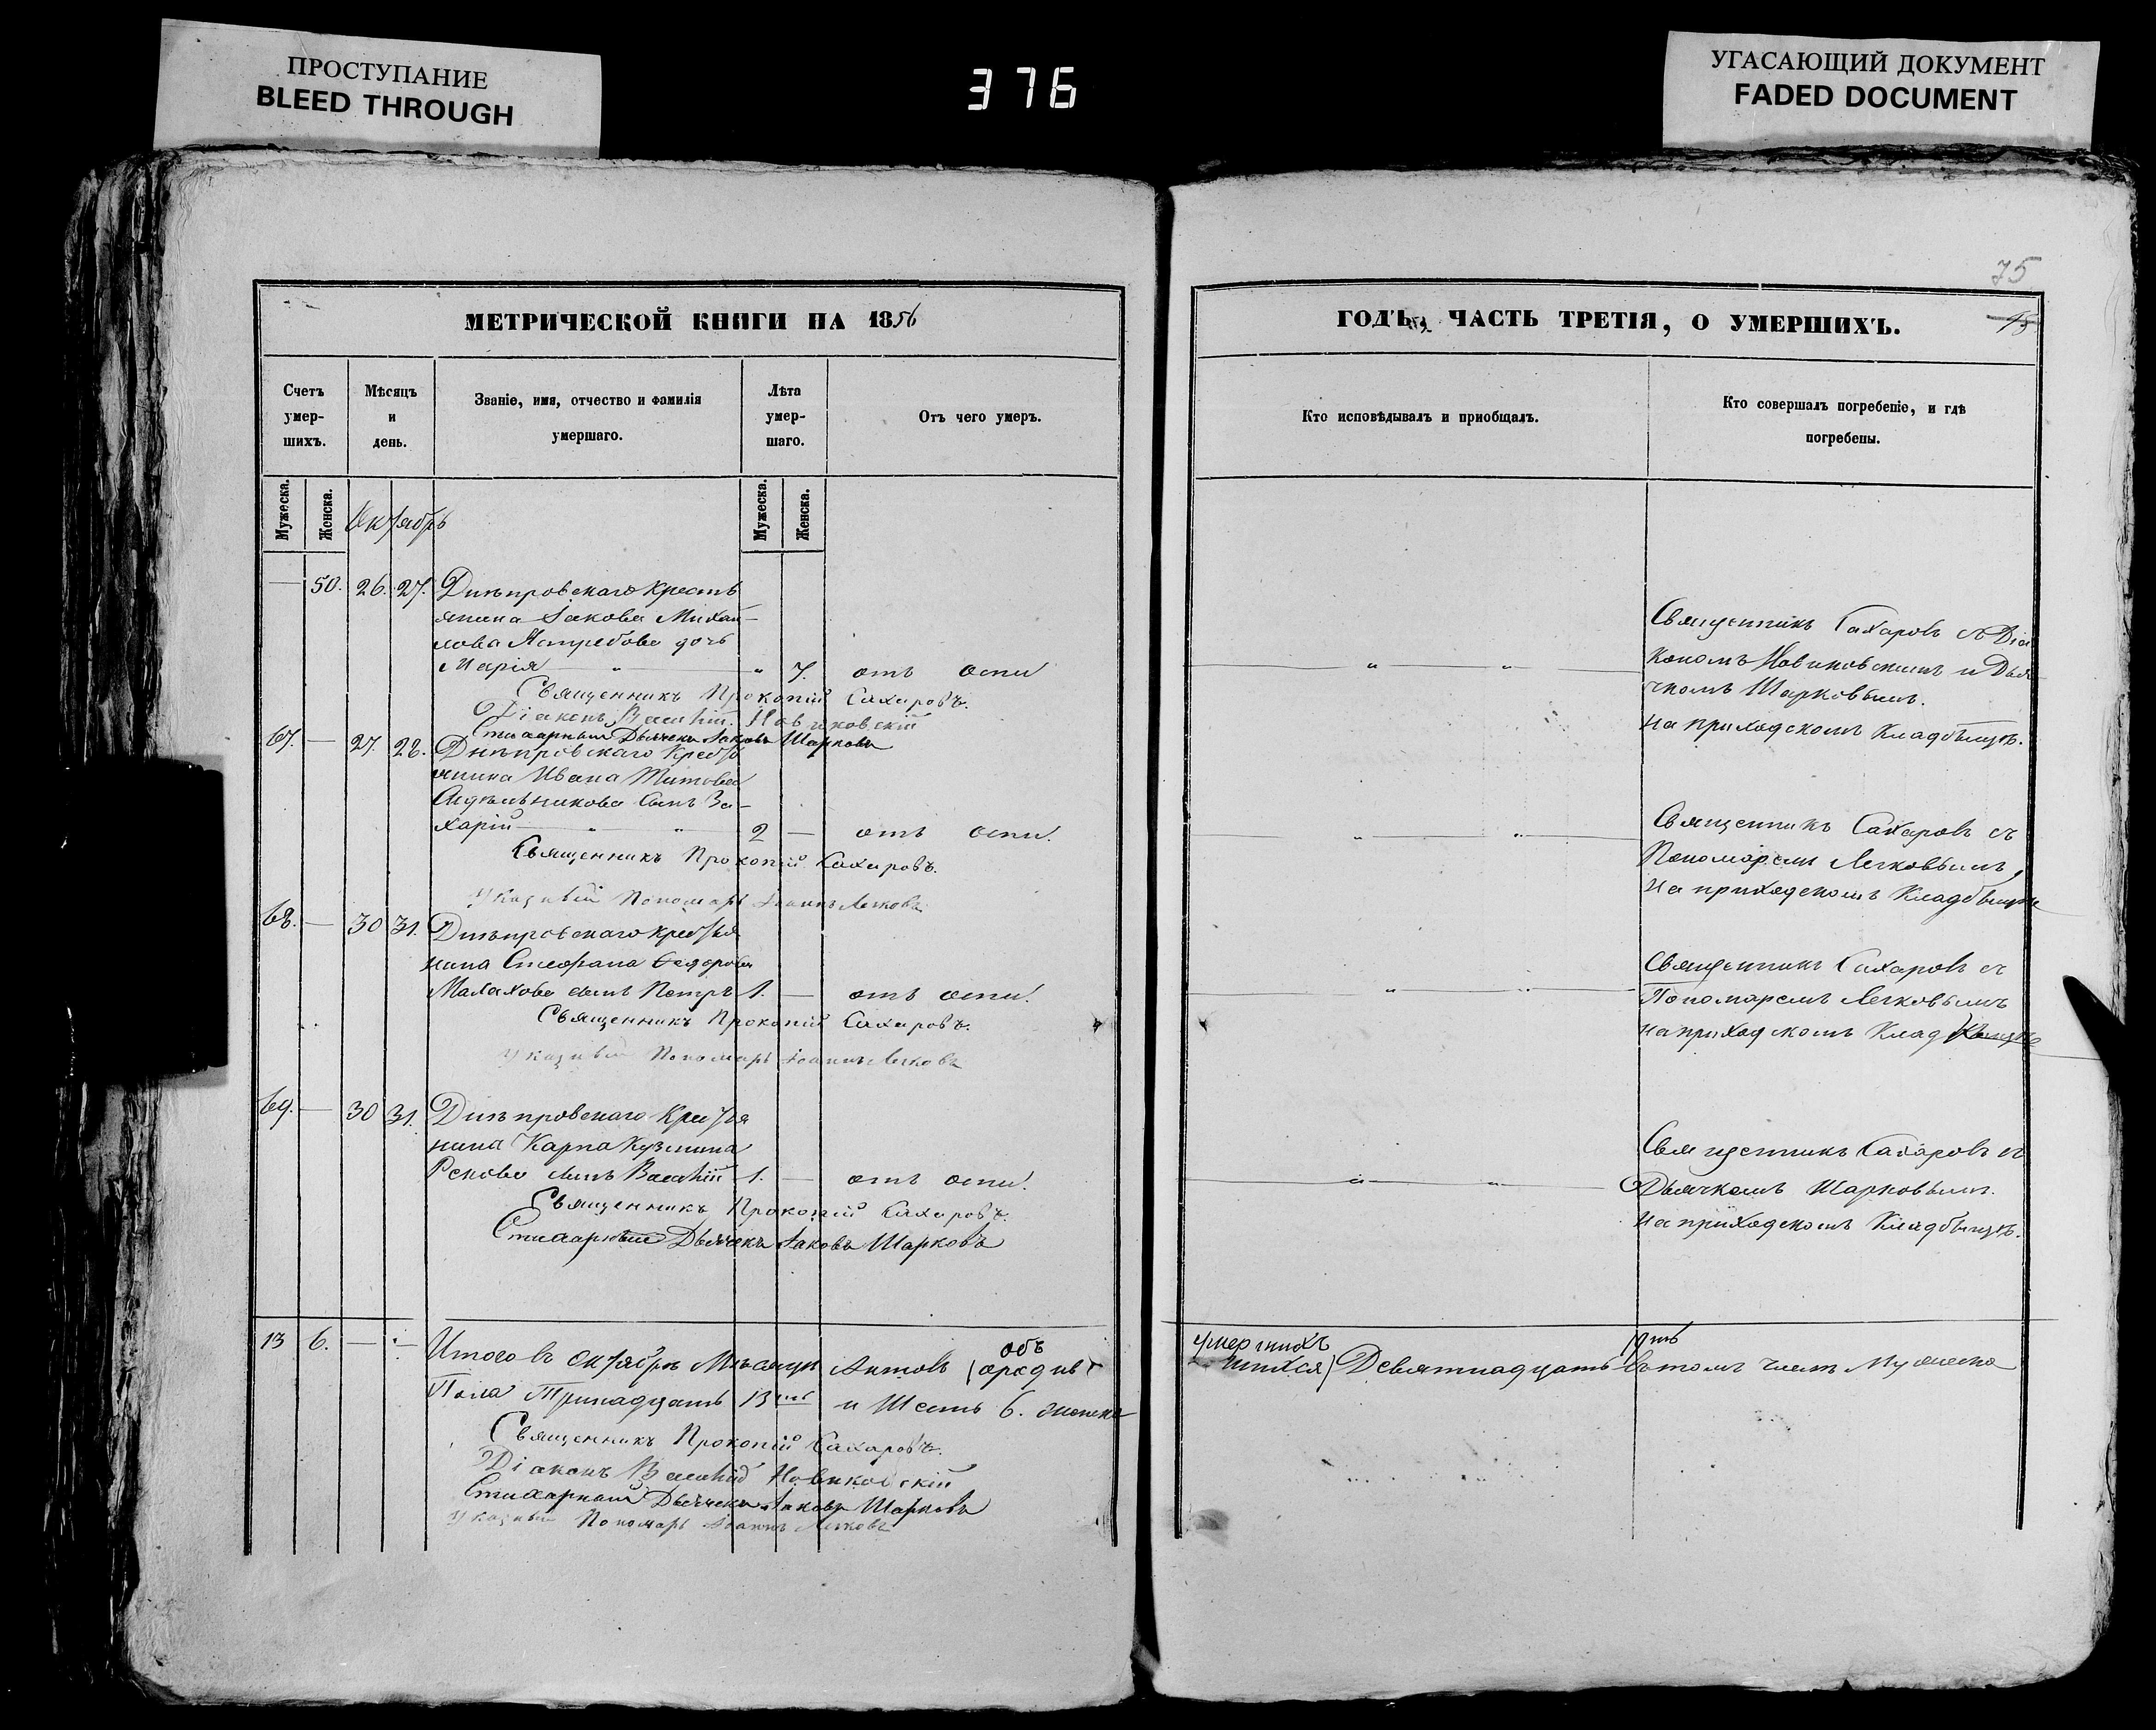 ПРОСТУПАНИЕ
BLEED THROUGH
376
УГАСАЮЩИЙ ДОКУМЕНТ
FADED DOCUMENT
75
МЕТРИЧЕСКОЙ КНИГИ НА 1856
ГОДЪ, ЧАСТЬ ТРЕТІЯ, О УМЕРШИХЪ.
Счетъ умер-шихъ.
Мѣсяцъ и день.
Званіе, имя, отчество и фамилія умершаго.
Лѣта умер-шаго.
Отъ чего умеръ.
Кто исповѣдывалъ и приобщалъ.
Кто совершалъ погребеніе, и гдѣ погребены.
Мужеска.
Женска.
Октябрь
Мужеска.
Женска.
— 50. 26. 27. Днѣпровскаго крестъ
янина Іакова Михай-
лова Ястребова дочь
Марія „ „ 7. отъ оспы
Священникъ Прокопій Сахаровъ.
Діаконъ Василій Новиковскій
Стихарный Дьячекъ Іаковъ Шарковъ
Священникъ Сахаровъ съ Діа
кономъ Новиковскимъ и Дья
чкомъ Шарковымъ.
на приходскомъ Кладбищѣ.
67. — 27. 28. Днѣпровскаго Крестья
янина Ивана Титова
сынъ За-
харій „ „ 2 — отъ оспы.
Священникъ Прокопій Сахаровъ.
Указный Пономарь Іоаннъ Легковъ
Священникъ Сахаровъ съ
Пономаремъ Легковымъ,
на приходскомъ Кладбищѣ
68. — 30 31. Днѣпровскаго крестья
нина Стефана Ѳедорова
Малахова сынъ Петръ 1. — отъ оспы.
Священникъ Прокопій Сахаровъ.
Указный Пономарь Іоаннъ Легковъ
Священникъ Сахаровъ съ
Пономаремъ Легковымъ
на приходскомъ Кладбищѣ
69. — 30 31. Днѣпровскаго Крестья
нина Карпа Кузмина
сынъ Василій 1. — отъ оспы.
Священникъ Прокопій Сахаровъ.
Стихарный Дьячекъ Іаковъ Шарковъ
Священникъ Сахаровъ съ
Дьячкомъ Шарковымъ.
на приходскомъ Кладбищѣ.
13 6. — Итого въ октябрѣ Мѣсяцѣ объ умершихъ Девятнадцать въ томъ числѣ Мужеска
Пола Тринадцать 13ть и Шесть 6. женска
Священникъ Прокопій Сахаровъ.
Діаконъ Василій Новиковскій
Стихарный Дьячекъ Іаковъ Шарковъ
Указный Пономарь Іоаннъ Легковъ